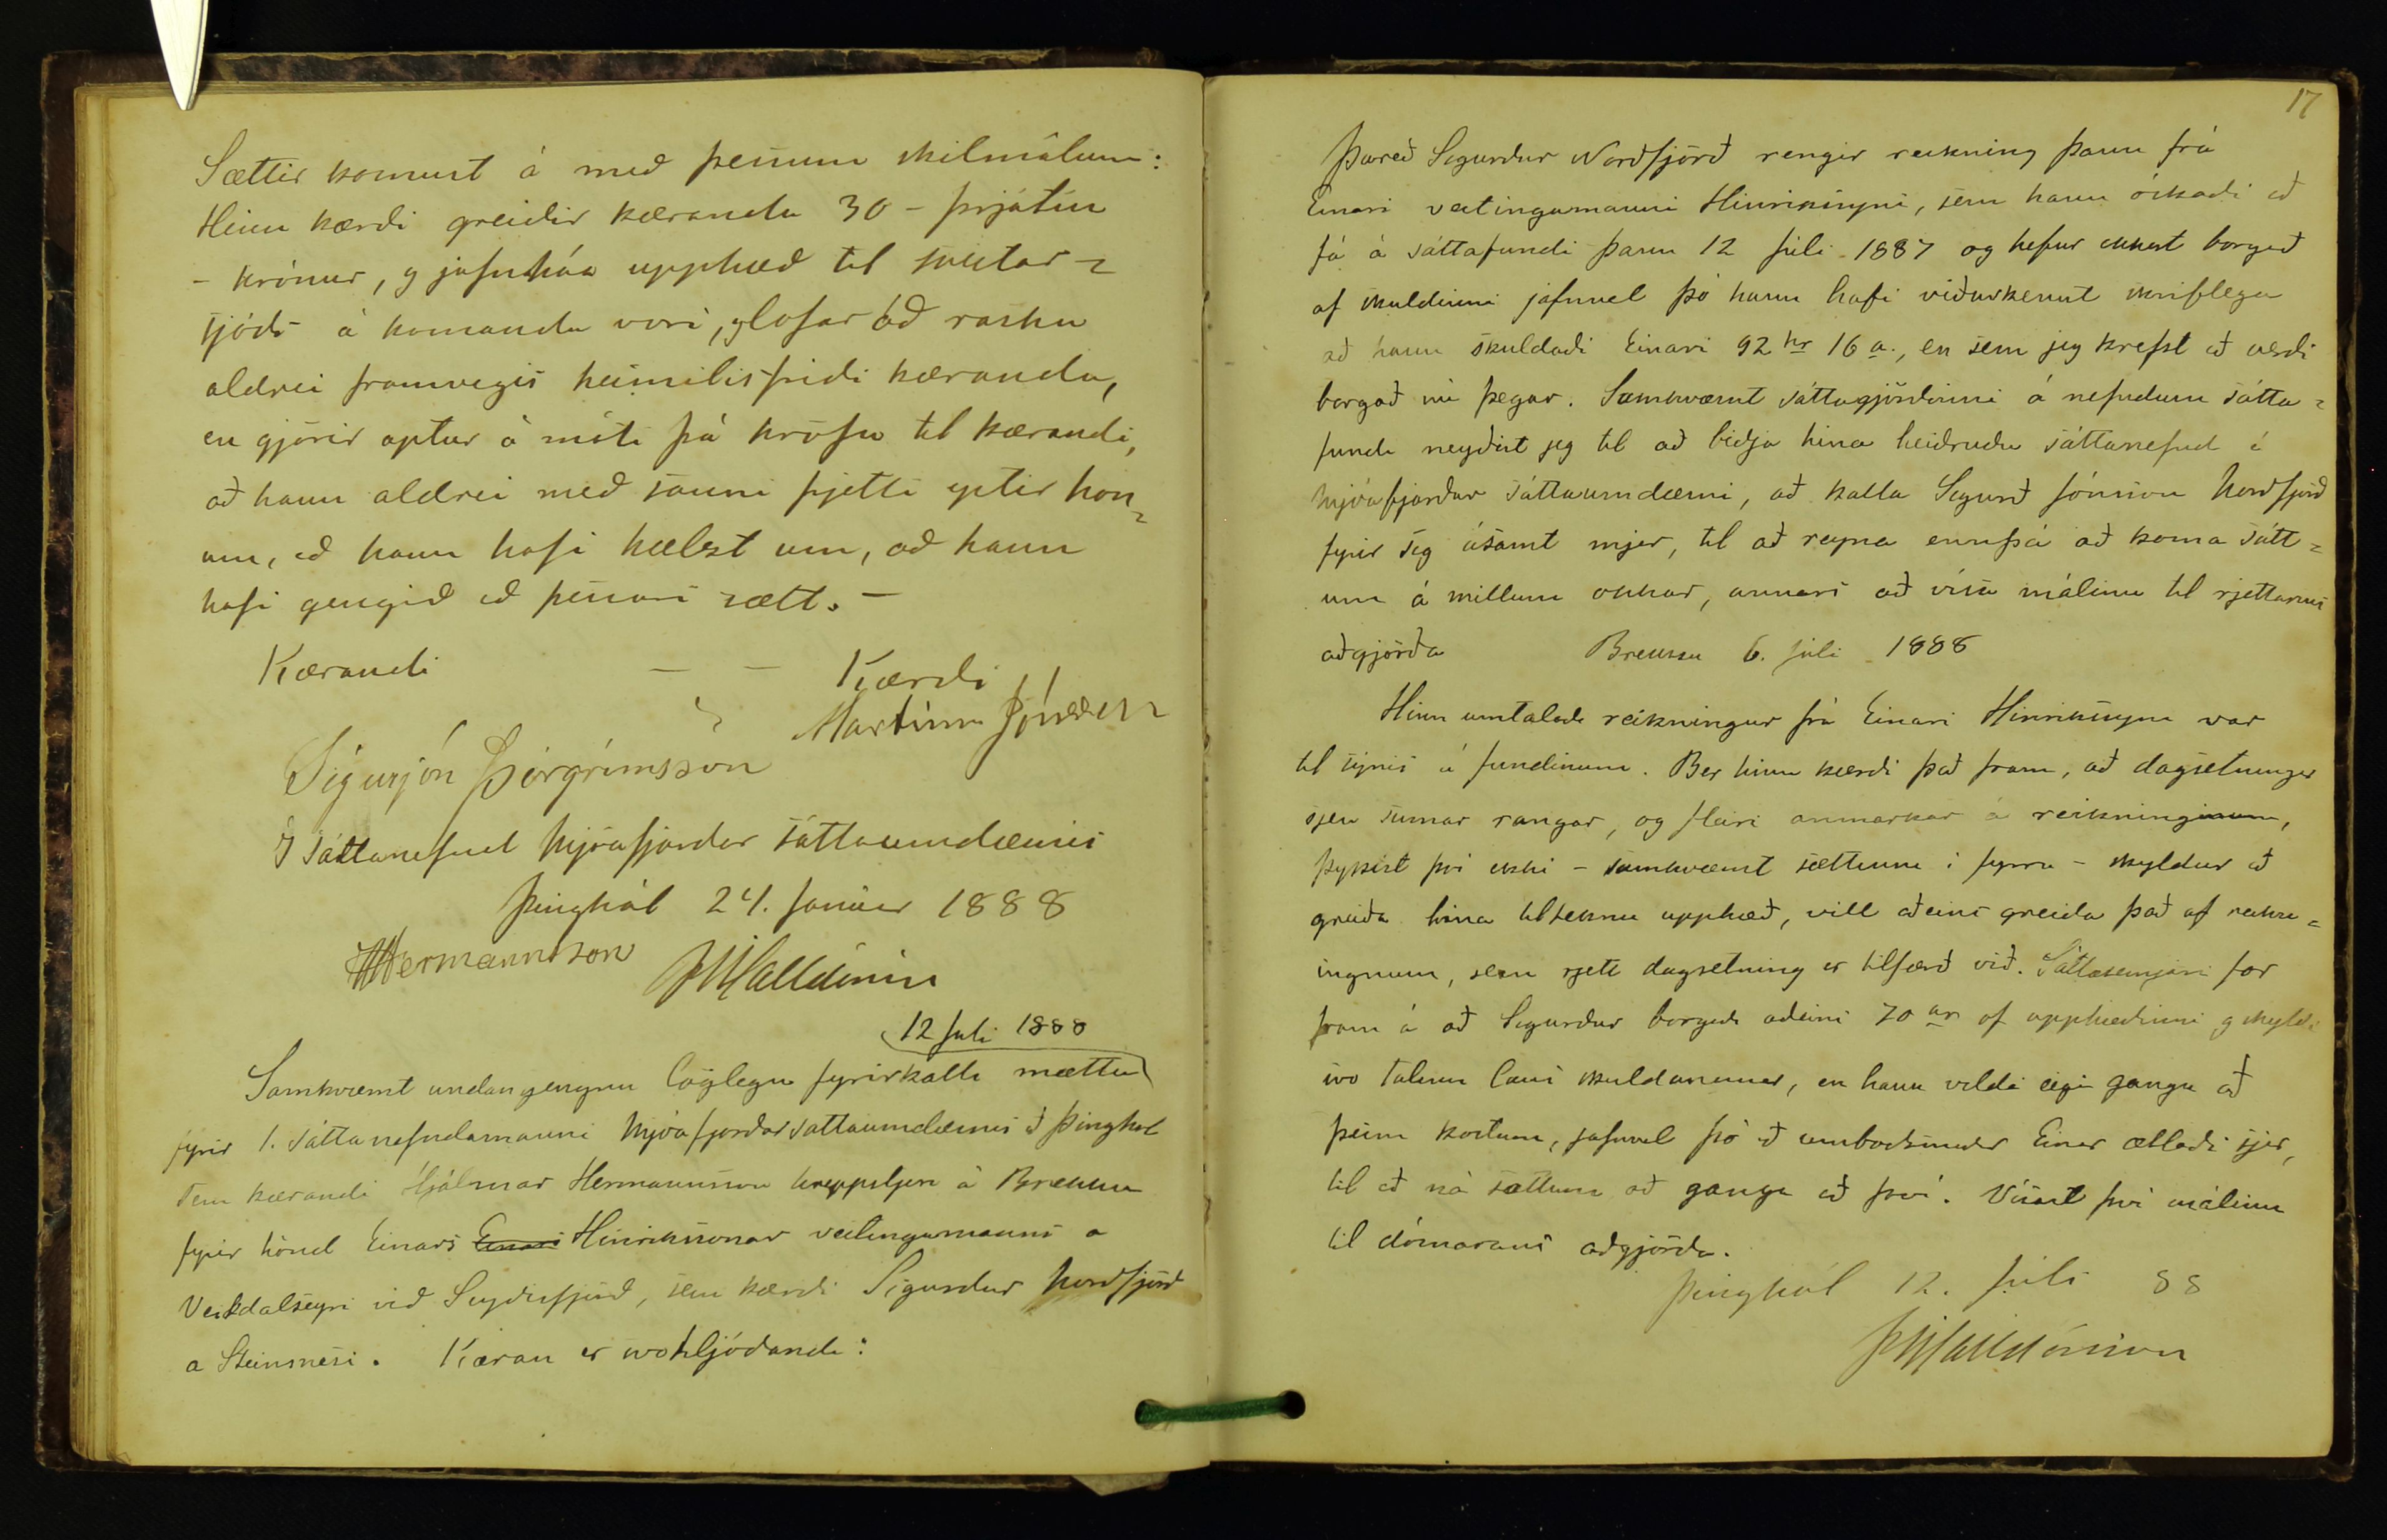 Sættir komust á með þessum skilmálum:
Hinn kærði greiðir kæranda 30 - þrjátíu
- krónur, og jafnháa upphæð til sveitar=
sjóðs á komanda vori, og lofar að raska
aldrei framvegis heimilisfriði kæranda,
en gjörir aptur á móti þá kröfu til kærandi,
að hann aldrei með sanni frjetti eptir hon=
um, að hann hafi hælst um, að hann
hafi gengið að þessari sætt. -
Kærandi - - Kærði
Marteinn Jónsson
Sigurjón Þorgrímsson
Í sáttanefnd Mjóafjarðar sáttaumdæmis
Þinghól 24. Janúar 1888
HHermannsson
12 Juli 1888
Samkvæmt undangengnu löglegu fyrirkalli mættu
fyrir 1. sáttanefndamanni Mjóafjarðarsáttaumdæmis að Þinghol
sem kærandi Hjálmar Hermannsson hreppstjóri á Brekku
fyrir hönd Einars Einars Hinrikssonar veitingamanns a
Vestdalseyri við Seyðisfjörð, sem kærði Sigurður Nordfjörð
a Steinsnesi. Kæran er svohljóðandi:
17
Þareð Sigurður Nordfjörð rengir reikning þann frá
Einari veitingamanni Hinrikssyni, sem hann óskaði að
fá á sáttafundi þann 12 Júli 1887 og hefur ekkert borgað
af skuldinni jafnvel þó hann hafi viðurkennt skriflega
að hann skuldaði Einari 92 kr 16 a., en sem jeg krefst að verði
borgað nú þegar. Samkvæmt sáttagjörðinni á nefndum sátta=
fundi neyðist jeg til að biðja hina heiðruðu sáttanefnd í
Mjóafjarðar sáttaumdæmi, að kalla Sigurð Jónsson Nordfjörð
fyrir sig ásamt mjer, til að reyna ennþá að koma sátt=
um á millum okkar, annars að vísa málinu til rjettarins
aðgjörða Brekku 6. Júli 1888
Hinn umtalaði reikningur frá Einari Hinrikssyni var
til sýnis á fundinum. Ber hinn kærði það fram, að dagsetningar
sjeu sumar rangar, og fleiri anmarkar á reikninginum,
þykist því ekki - samkvæmt sættinni í fyrra - skyldur að
greiða hina tilteknu upphæð, vill aðeins greiða það af reikn=
ingnum, sem rjett dagsetning er tilfærð við. Sáttasemjari fór
fram á að Sigurður borgaði aðeins 70 kr af upphæðinni og skyldi
svo talinn laus skuldunnar, en hann vildi eigi ganga að
þeim kostum, jafnvel þó að umboðsmaður Einar ætlaði sjer,
til að ná sættum að ganga að því. Vísast því málinu
til dómarans aðgjörða.
Þinghól 12. Júli 88